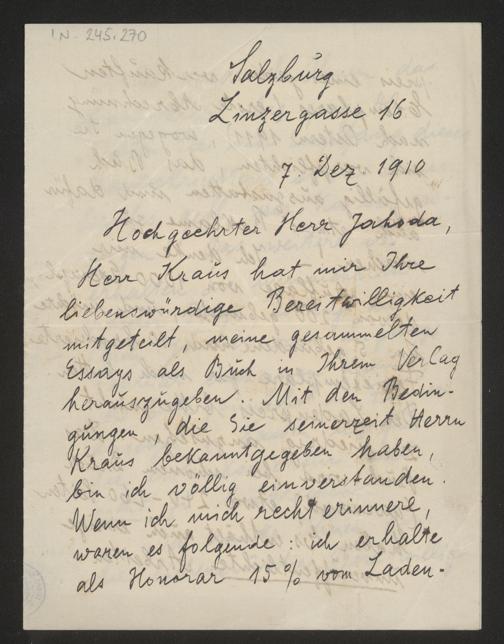 IN-245.270
Salzburg
Linzergasse 16
7. Dez 1910
Hochgeehrter Herr Jahoda,
Herr Kraus hat mir Ihre
liebenswürdige Bereitwilligkeit
mitgeteilt, meine gesammelten
Essays als Buch in Ihrem Verlag
herauszugeben. Mit den Bedin-
gungen, die Sie seinerzeit Herrn
Kraus bekanntgegeben haben,
bin ich völlig einverstanden.
Wenn ich mich recht erinnere,
waren es folgende: ich erhalte
als Honorar 15% vom Laden-